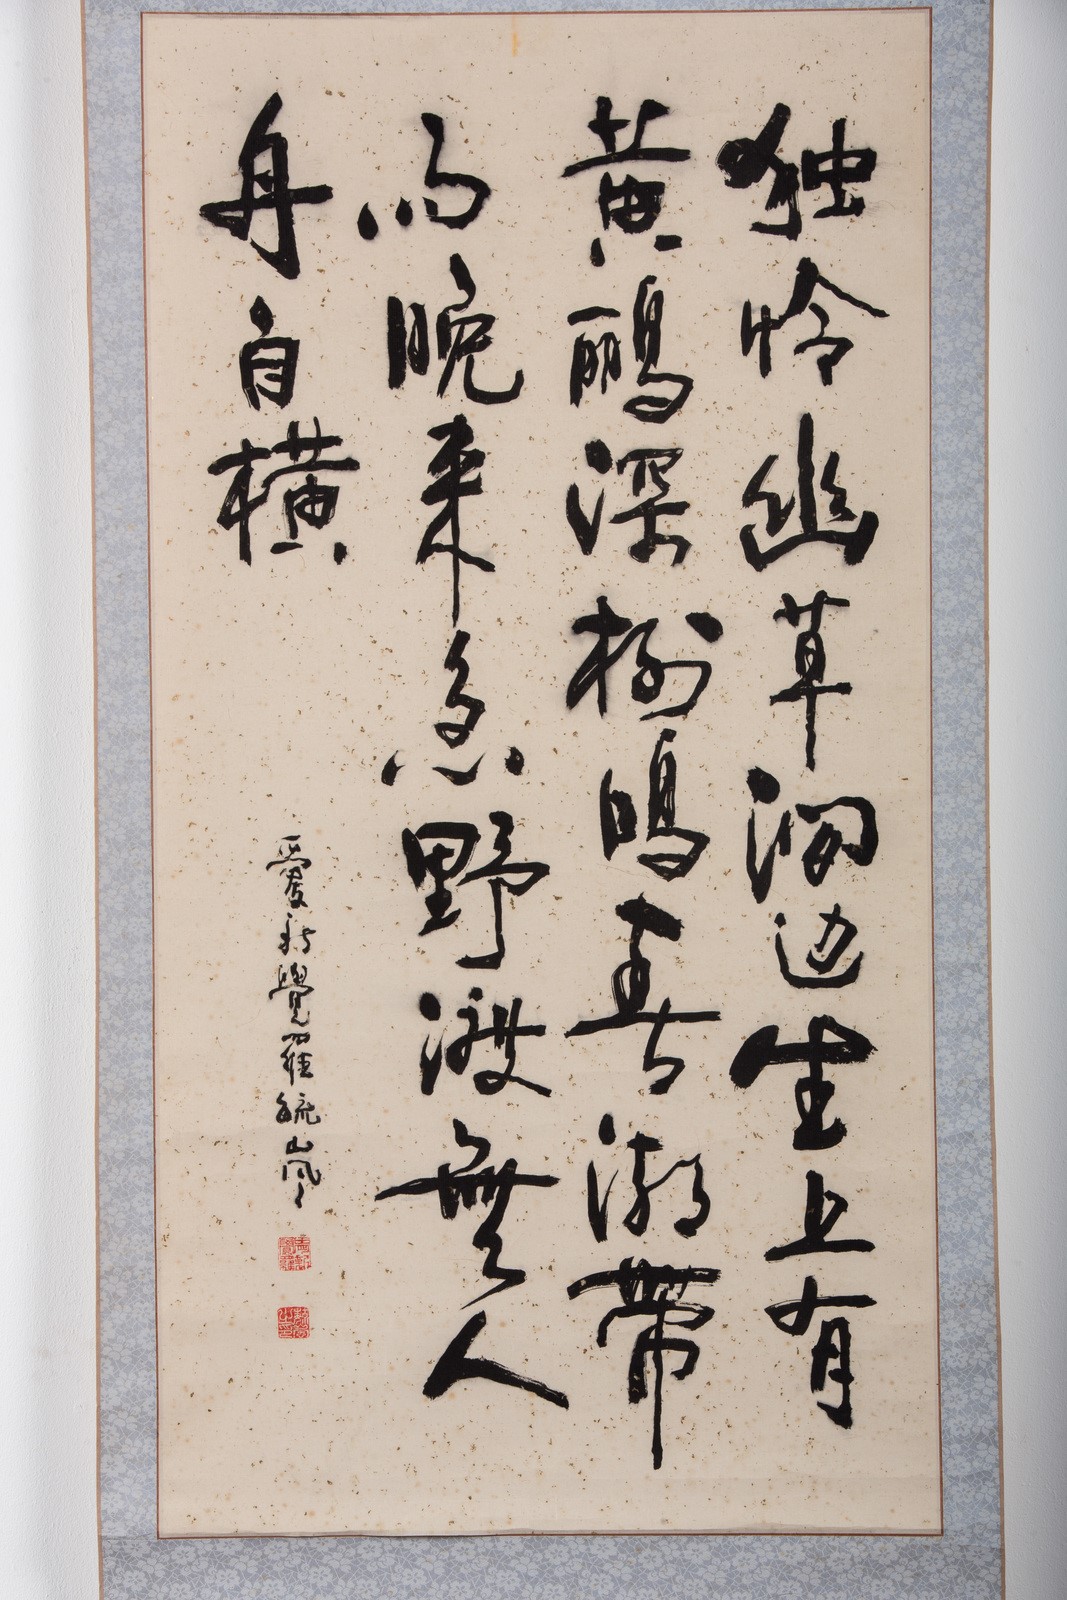 独怜幽草涧边生上有
黄鹂深树鸣春潮带
雨晚来急野渡無人
舟自横
愛新覺羅毓嵐